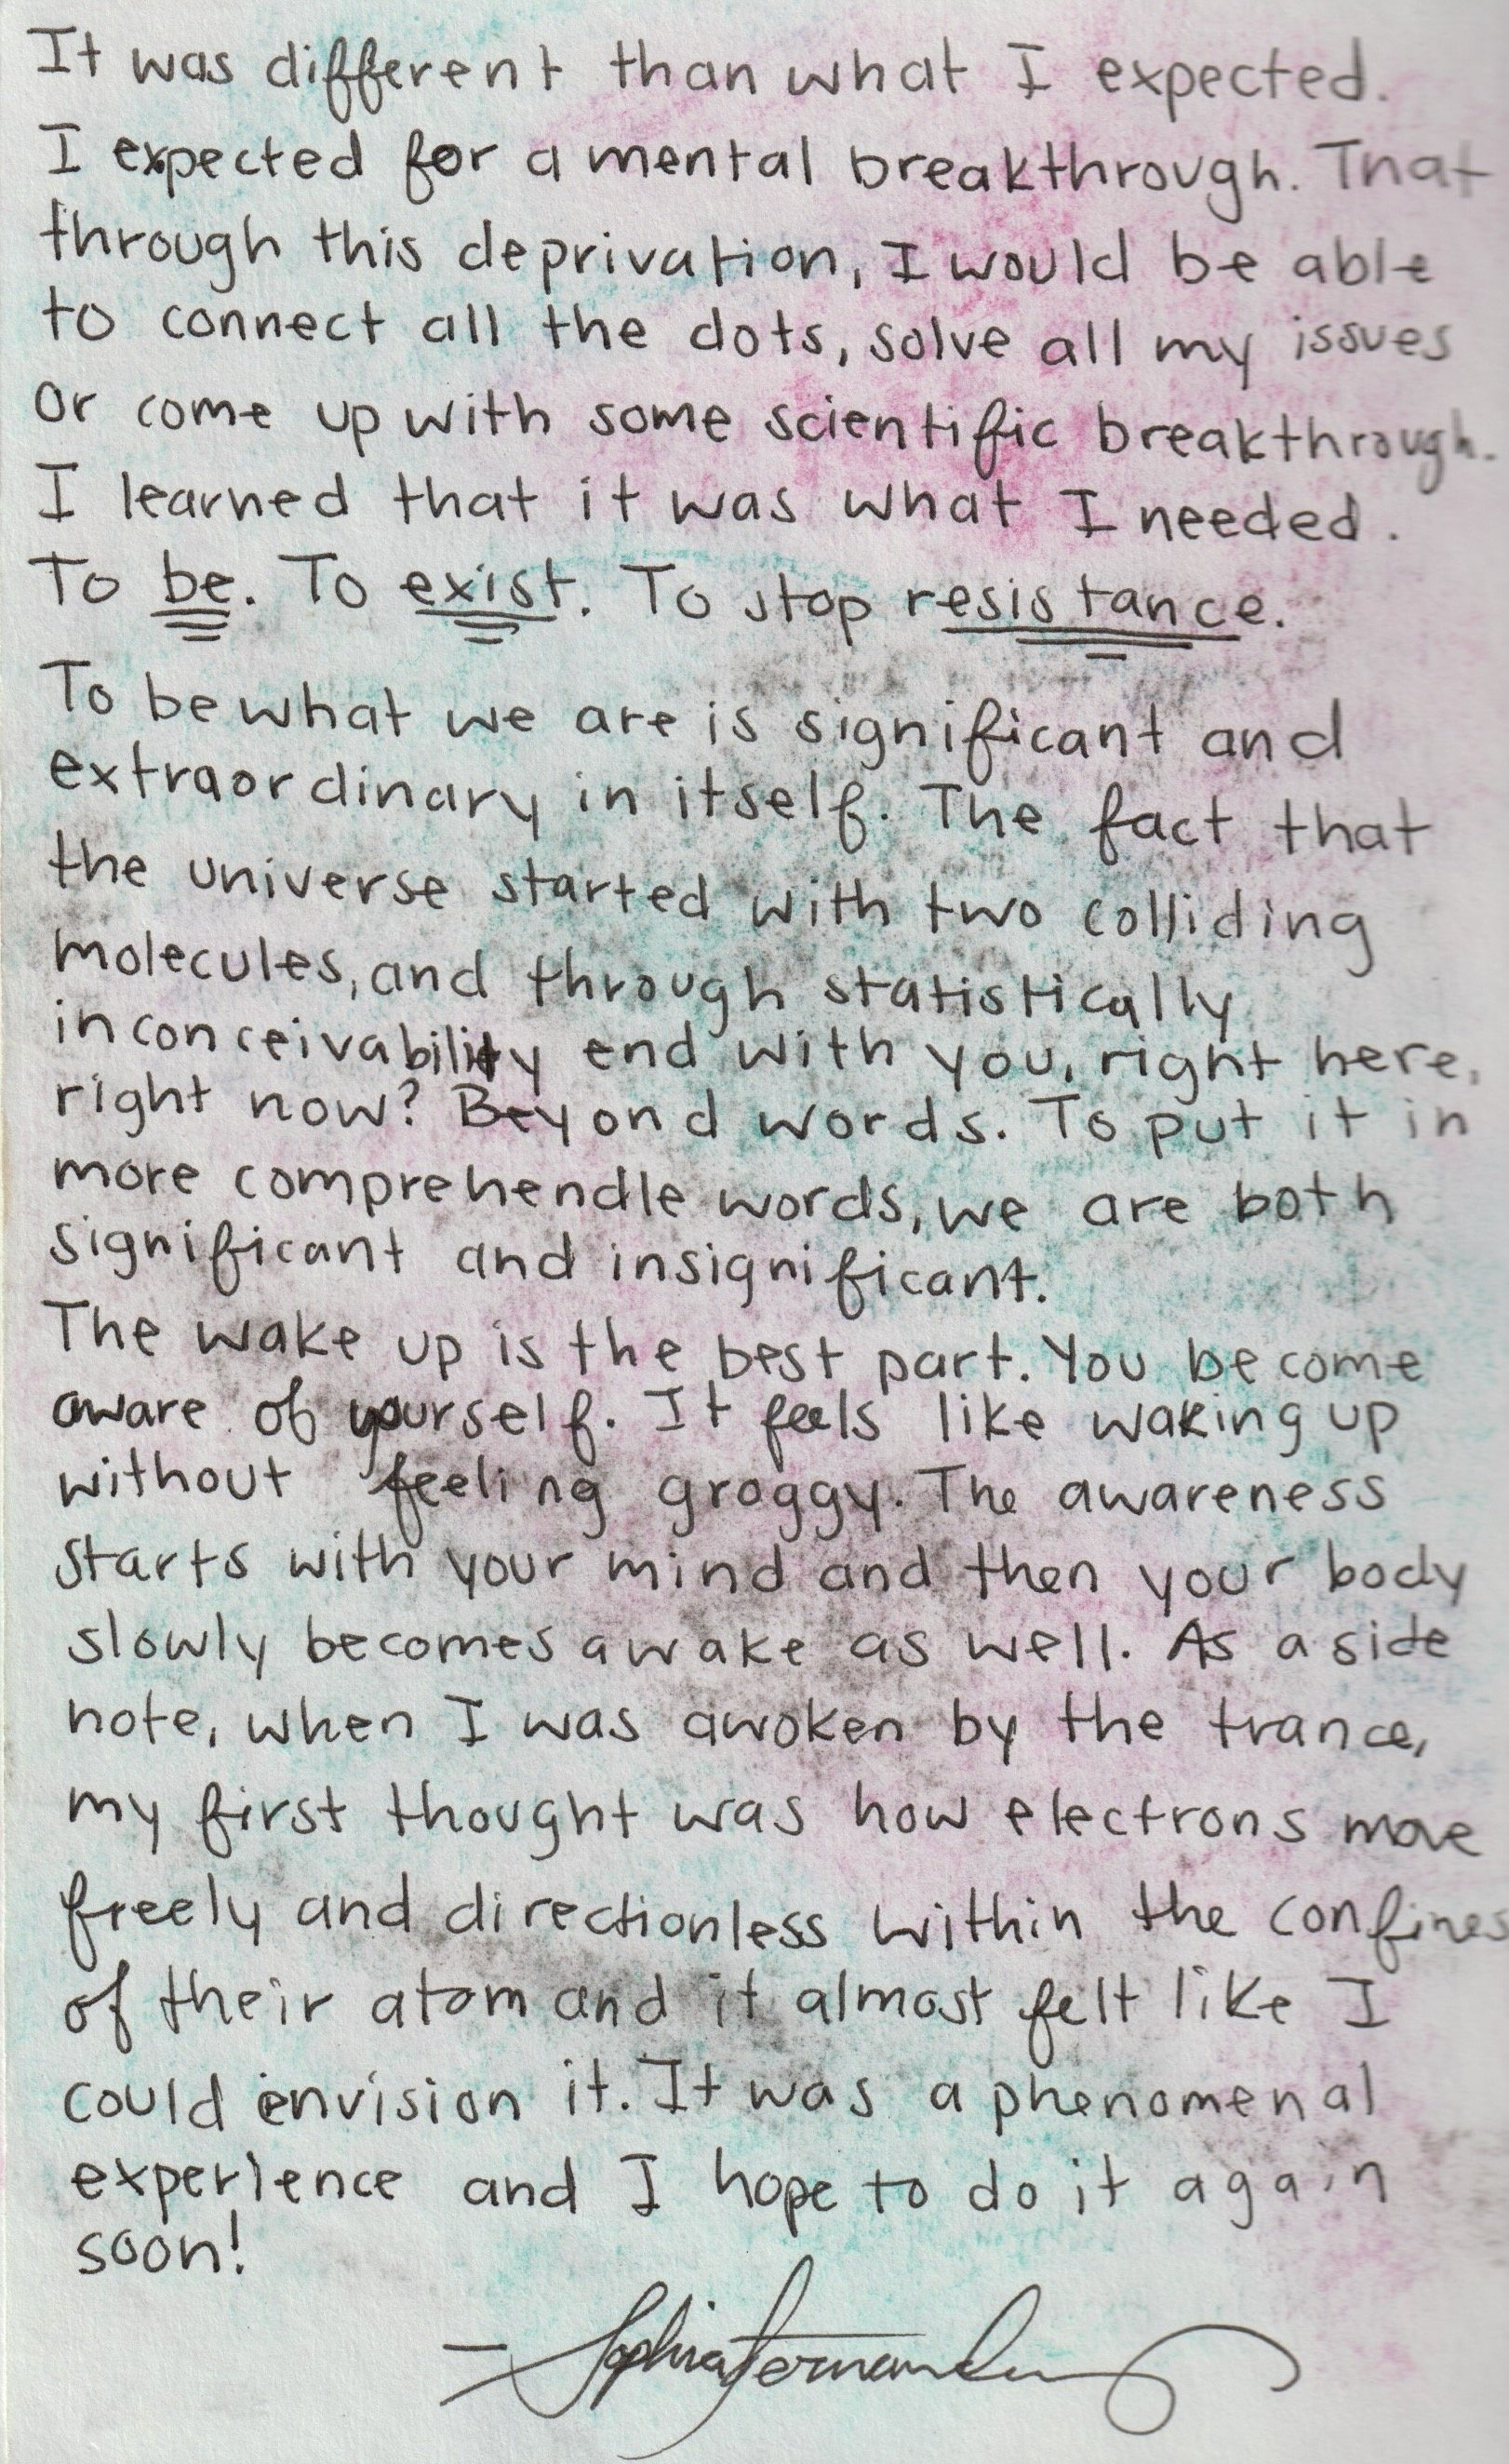 It was different than what I expected.
I expected for a mental breakthrough. That
through this deprivation, I would be able
to connect all the dots, solve all my issues
or come up with some scientific breakthrough.
I learned that it was what I needed.
To be. To exist. To stop resistance.
To be what we are is significant and
extraordinary in itself. The fact that
the universe started with two colliding
molecules, and through statistically
inconceivability end with you, right here,
right now? Beyond words. To put it in
more comprehendle words, we are both
significant and insignificant.
The wake up is the best part. You become
aware of yourself. It feels like waking up
without feeling groggy. The awareness
starts with your mind and then your body
slowly becomes awake as well. As a side
note, when I was awoken by the trance,
my first thought was how electrons move
freely and directionless within the confines
of their atom and it almost felt like I
could envision it. It was a phenomenal
experience and I hope to do it again
soon!
- Sophia Fernandez